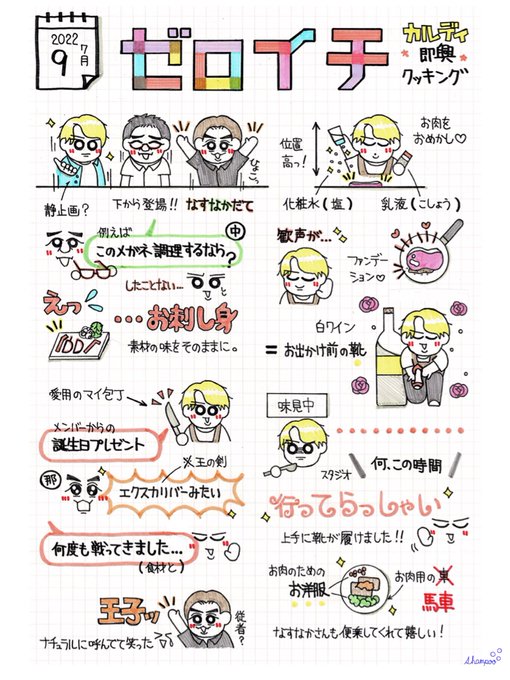 2022
7月
9
ゼロイチ
カルディ
即興
クッキング
静止画?
下から登場!!
なすなかだて
ひょこっ
例えば
中
このメガネ調理するなら?
したことない…
と
えっ
…お刺し身
素材の味をそのままに。
愛用のマイ包丁
メンバーからの
誕生日プレゼント
那
メ王の剣
エクスカリバーみたい
何度も戦ってきました…
(食材と)
王子ッ
従者?
ナチュラルに呼んでて笑った
位置
高っ!
お肉を
おめかし♡
化粧水(塩)
乳液(こしょう)
歓声が…
ファンデー
ション♡
白ワイン
=お出かけ前の靴
味見中
スタジオ
\何、この時間/
行ってらっしゃい
上手に靴が履けました!!
お肉のための
お洋服
お肉用の車
馬車
なすなかさんも便乗してくれて嬉しい!
shampoo